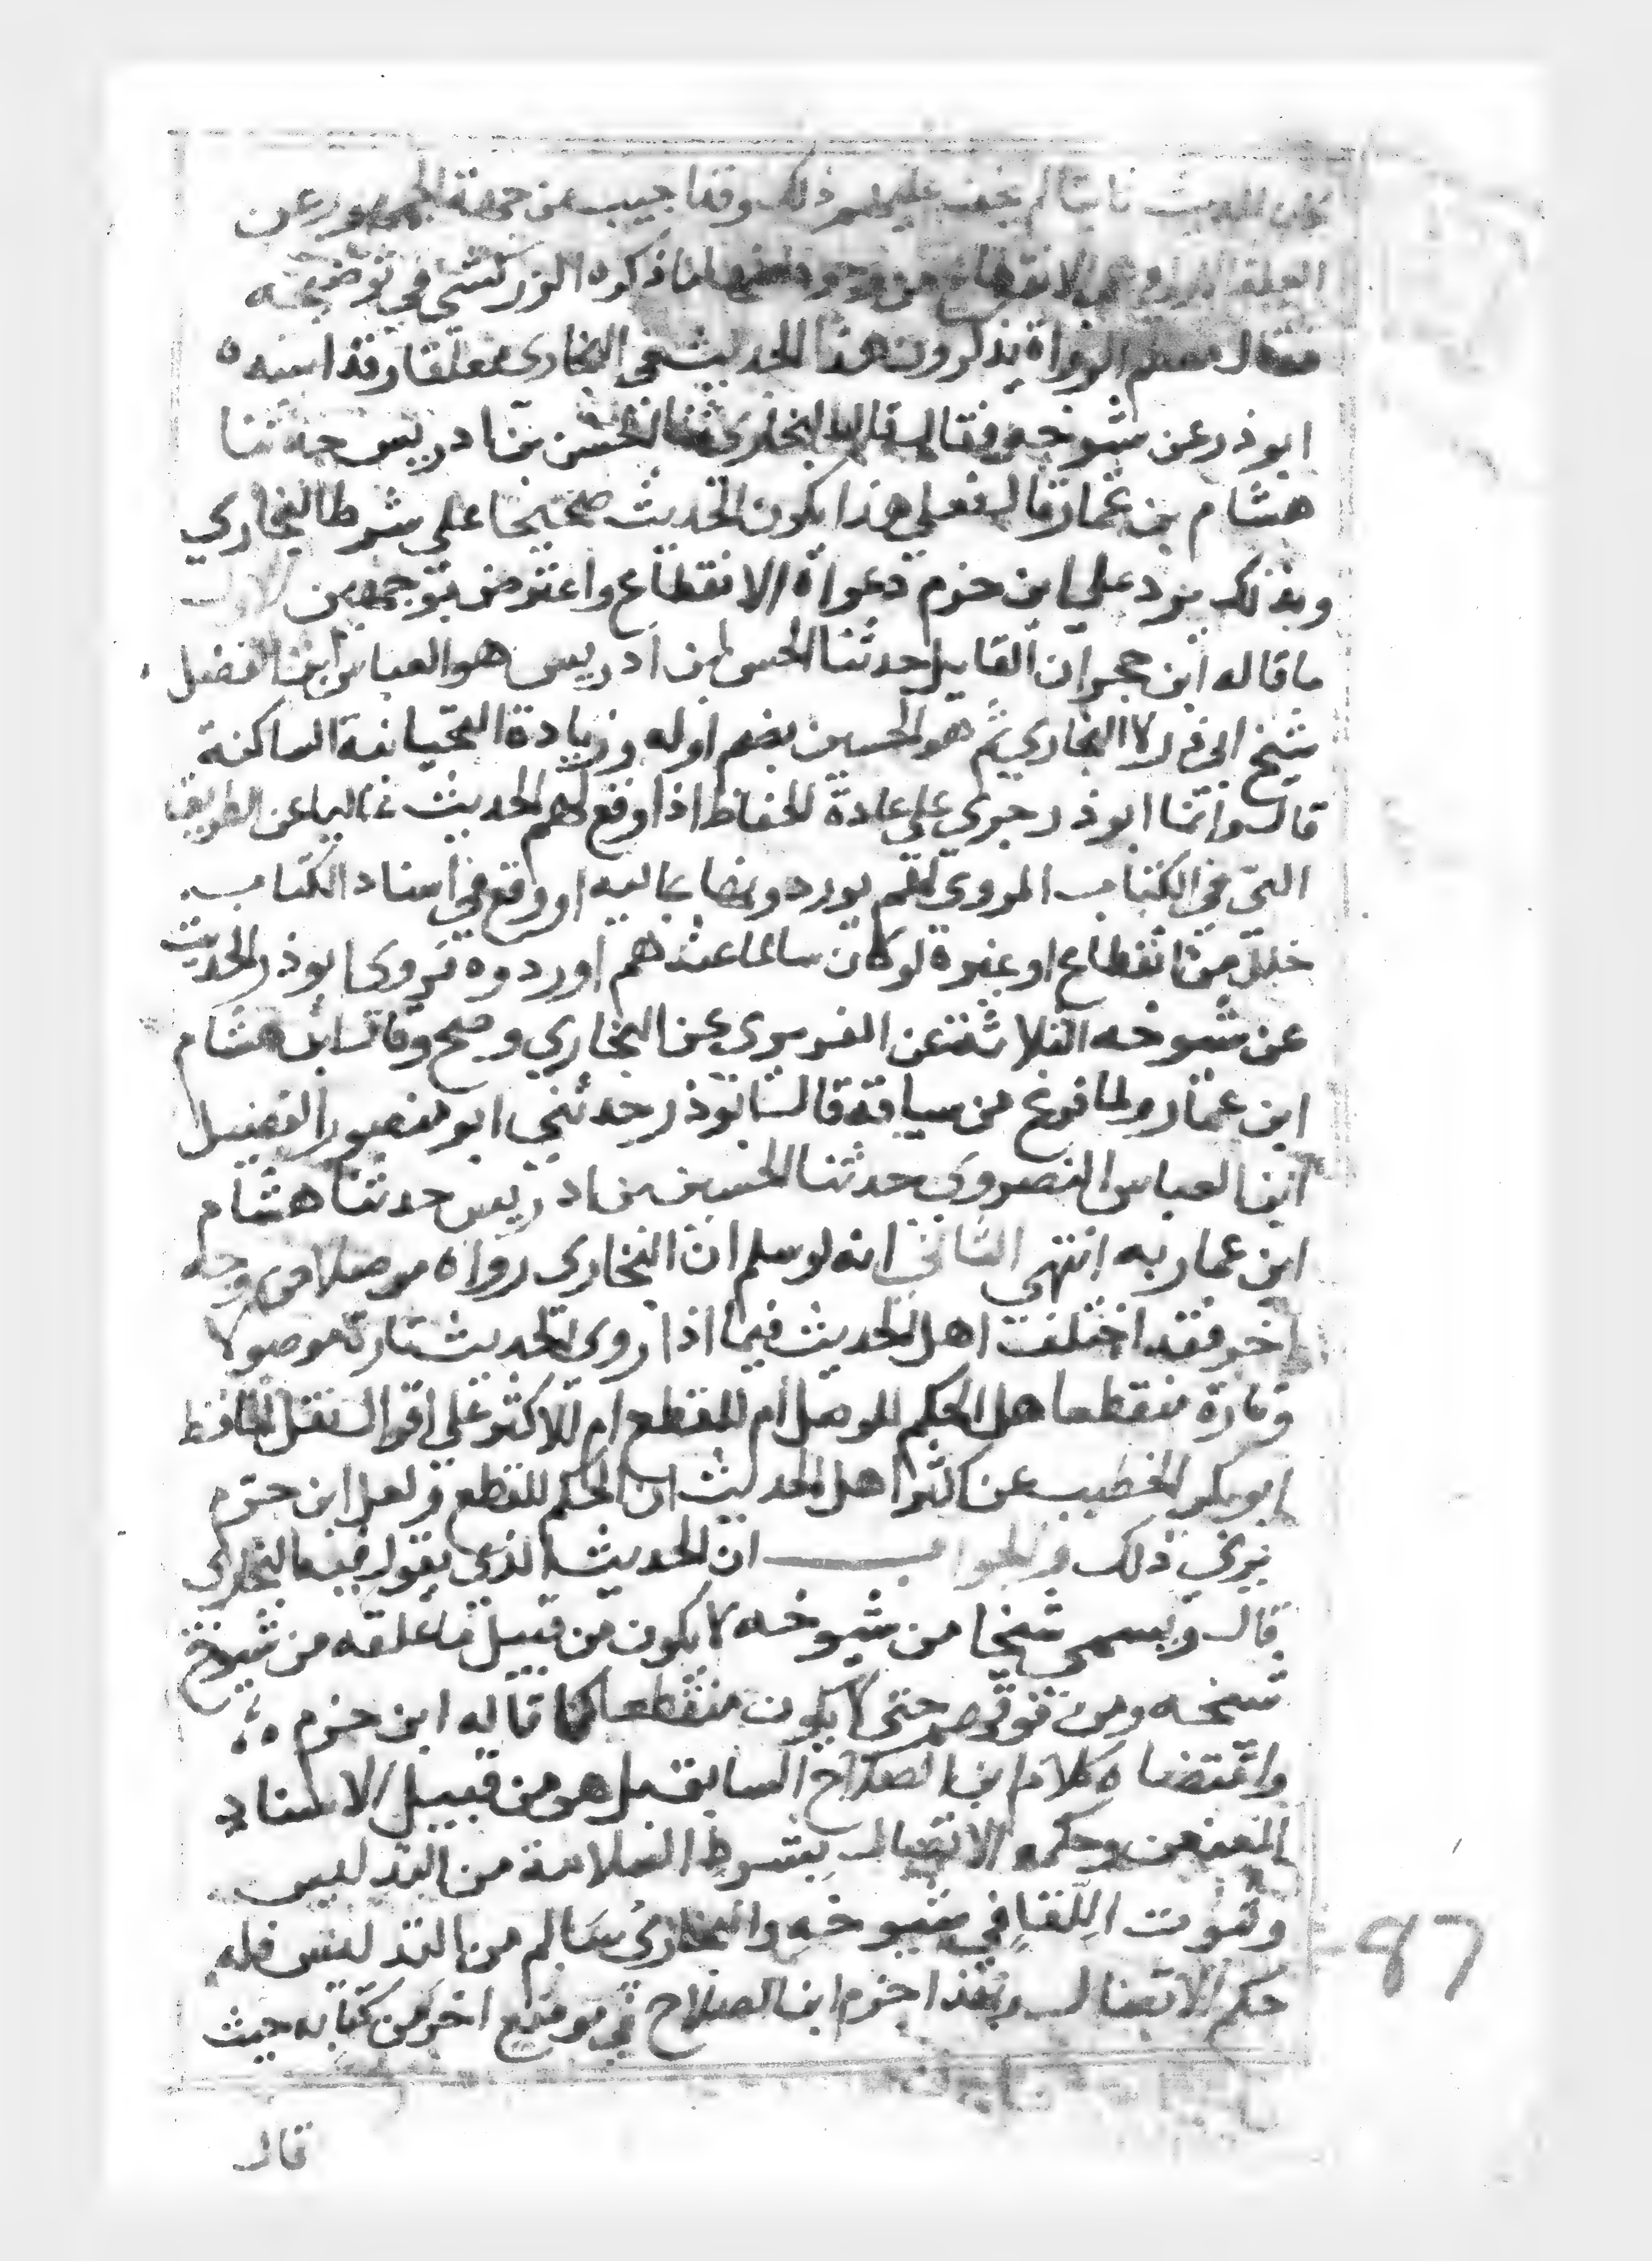 ثابتا لم يخف عليهم ذلك وقد اجيب عن جهة الجمهور عن
الانقطاع من وجوه احدها ما ذكره الزركشي في توضيحه
فقال معظم الرواة يذكرون هذا الحديث في البخارى معلقا وقد اسنده
ابو ذر عن شيوخه فقال قال البخارى ثنا الحسن بن ادريس حدثنا
هشام بن عمار قال فعلى هذا يكون الحديث صحيحا على شرط البخاري
وبذلك يرد على ابن حزم دعواه الانقطاع واعترض بوجهين الاول
ما قاله ابن حجر ان القايل حدثنا الحسن بن ادريس هو العباس ابن الفضل
شيخ ابي ذر لا البخاري ثم هو الحسين بضم اوله وزيادة التحتيانية الساكنة
قال وانما ابو ذر جري على عادة الحفاظ اذا وقع لهم الحديث عاليا عن الطريق
التي في الكتاب المروى لهم يوردونها عاليه او وقع في اسناد الكتاب
خلل من انقطاع او غيره لو كان سالما عندهم اوردوه فروى ابو ذر الحديث
عن شيوخه الثلاثة عن الفربرى عن البخاري وصح وقال ابن هشام
ابن عمار ولما فرغ من سياقه قال ابو ذر حدثني ابو منصور الفضيل
ابن العباس النصروى حدثنا الحسين بن ادريس حدثنا هشام
ابن عمار به انتهى الثاني انه لو سلم ان البخارى رواه موصلا من وجه
اخر فقد اختلف اهل الحديث فيما اذا روى الحديث تارة موصولا
وتارة منقطعا هل الحكم للوصل ام للقطع ام للاكثر على اقوال نقل الحافظ
ابو بكر الخطيب عن اكثر اهل الحديث ان الحكم للقطع ولعل ابن حزم
يرى ذلك والجواب ان الحديث الذي يقول فيه البخارى
قال ويسمي شيخا من شيوخه لا يكون من قبيل ما علقه من شيوخ
شيخه ومن فوقهم حتى لا يكون منقطعا كما قاله ابن حزم
واقتضاه كلام ابن الصلاح السابق بل هو من قبيل الاسناد
المعنعن وحكمه الاتصال بشرط السلامة من التدليس
وثبوت اللقا في شيوخه والبخارى سالم من التدليس فله
حكم الاتصال وبهذا جزم ابن الصلاح في موضع اخر من كتابه حيث
قال
87